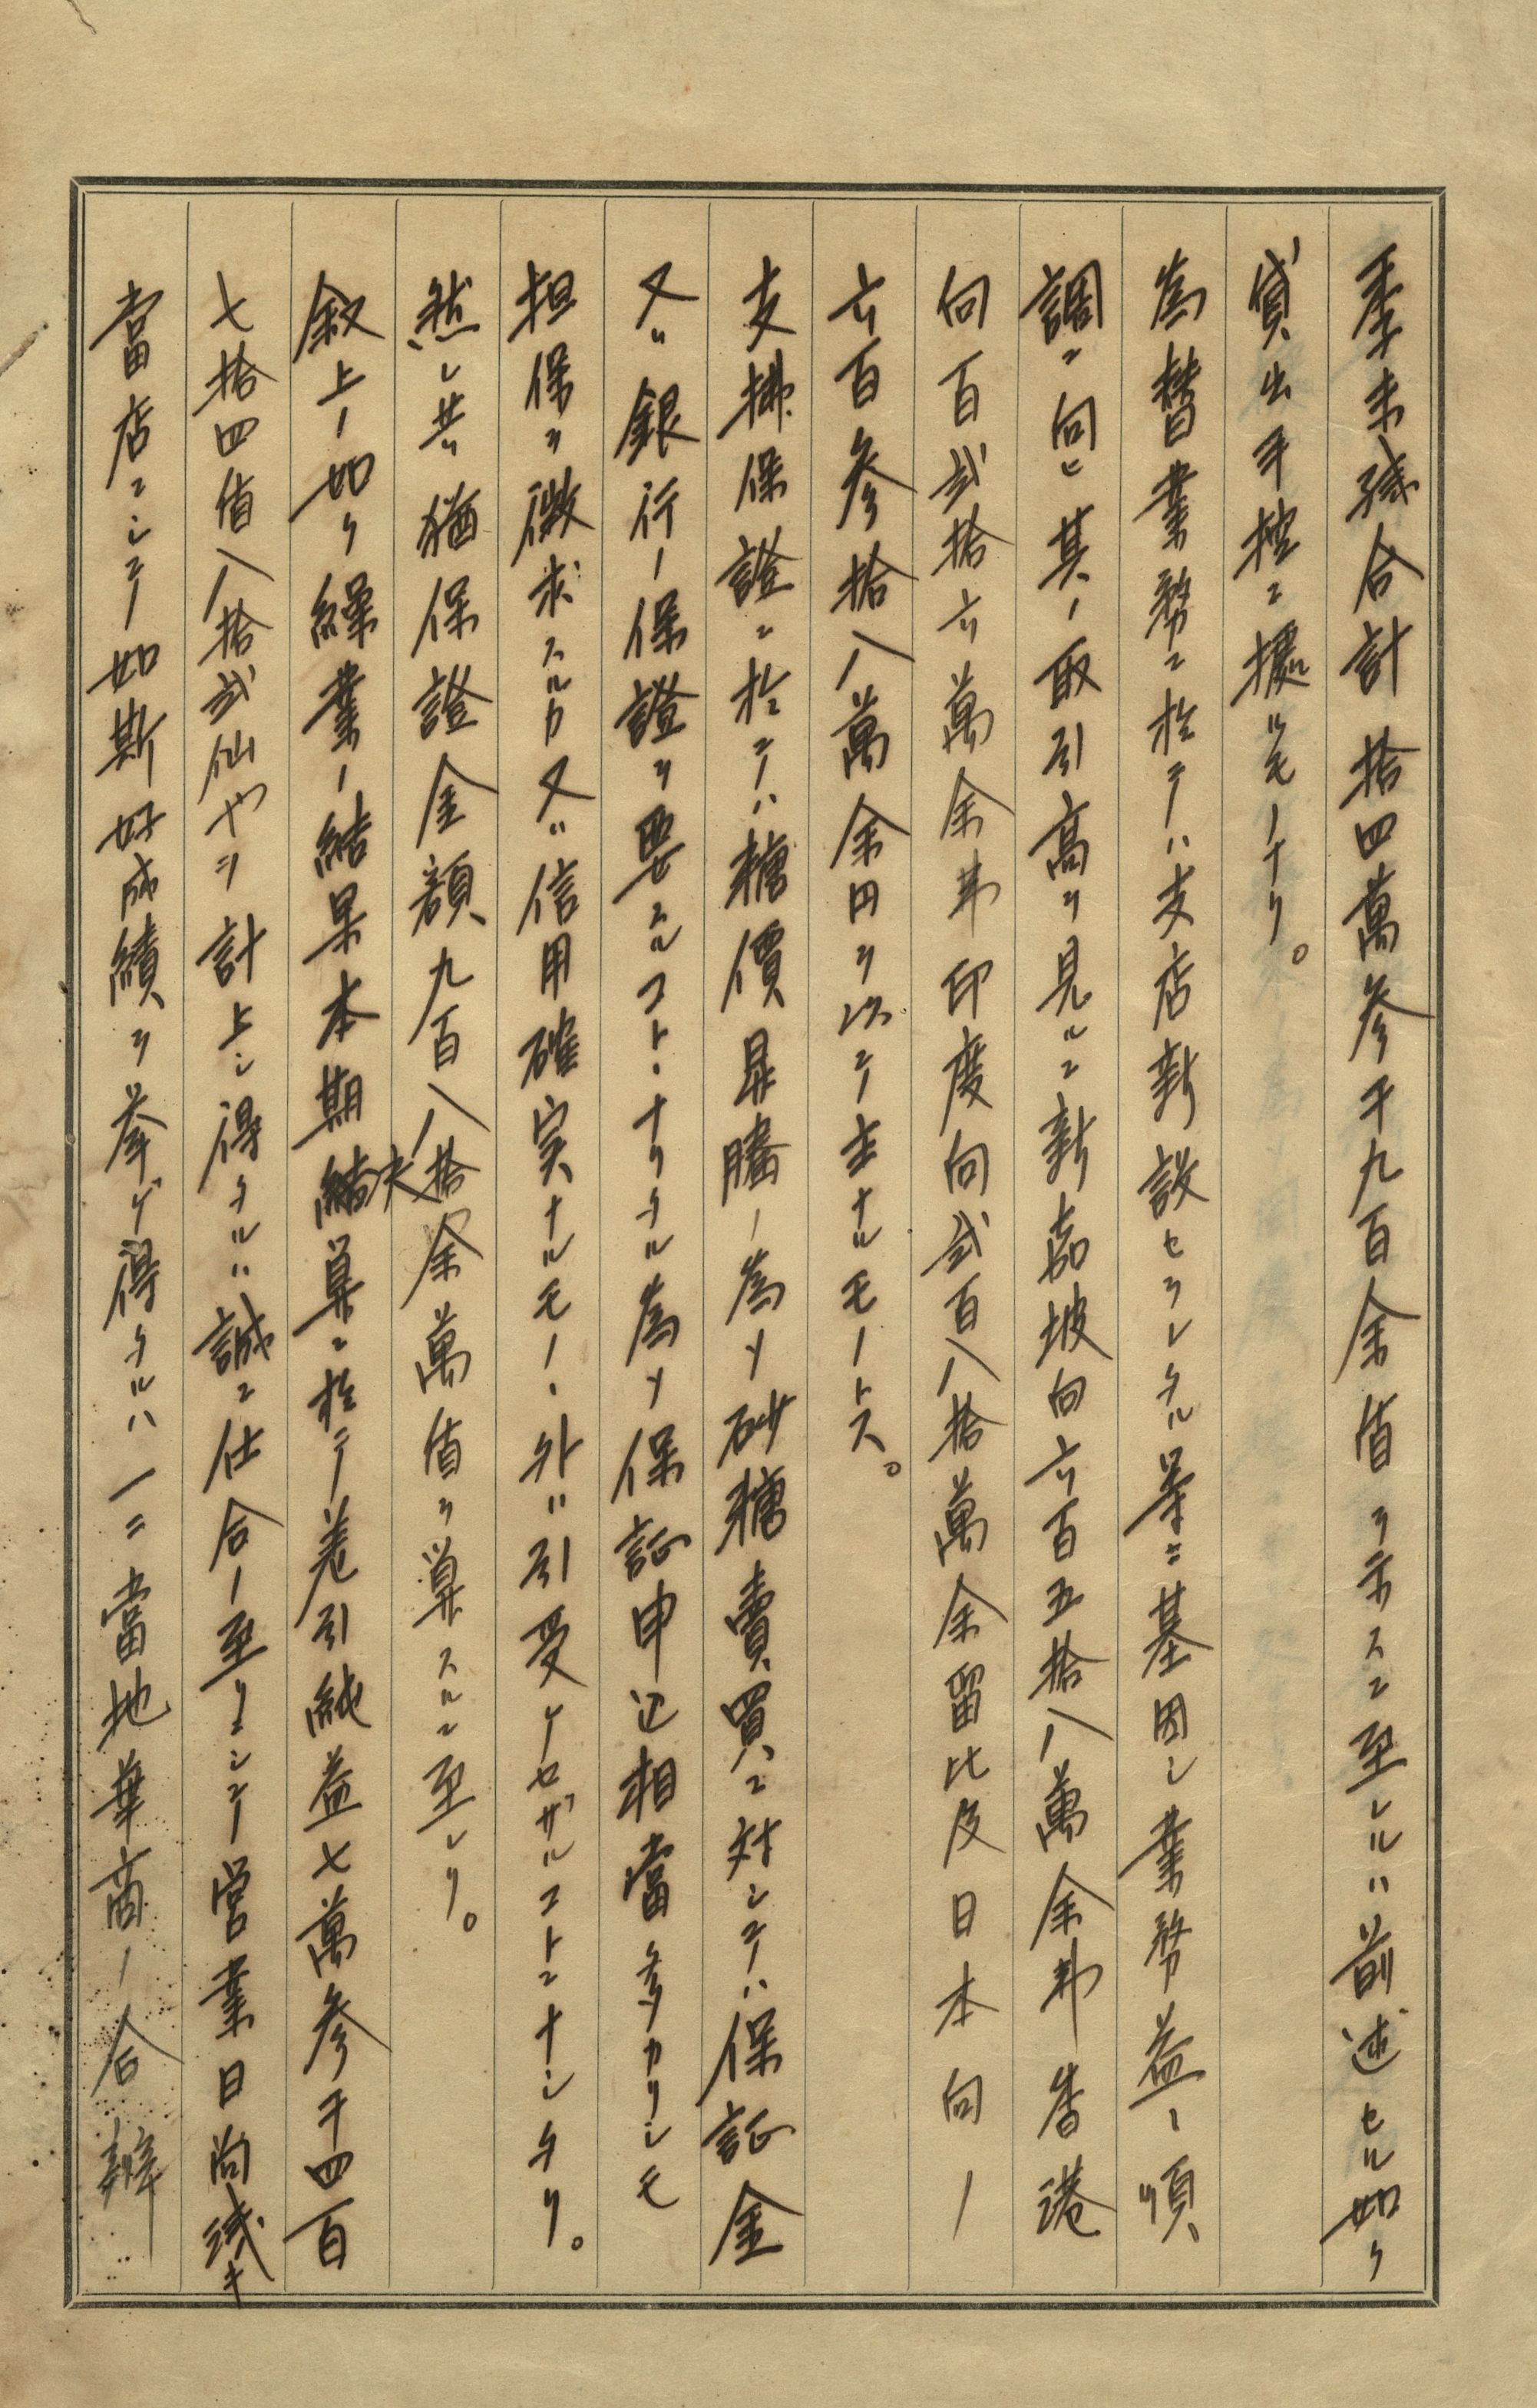 季末残合計拾四萬参千九百余盾ヲ示スニ至レルハ前述セル如ク
貸出手控ニ據ルモノナリ。
為替業務ニ於テハ支店新設セラレタル等ニ基因シ業務益々順
調ニ向ヒ其ノ取引高ヲ見ルニ新嘉坡向六百五拾八萬余弗香港
向百弐拾六萬余弗印度向弐百八拾萬余留比及日本向ノ
六百参拾八萬余円ヲ以テ主ナルモノトス。
支拂保證ニ於テハ糖價昻騰ノ為メ砂糖賣買ニ対シテハ保証金
又ハ銀行ノ保證ヲ要スルコトヽナリタル為メ保証申込相當多カリシモ
担保ヲ徴求スルカ又ハ信用確実ナルモノヽ外ハ引受ケセザルコトニナシタリ。
然レ共猶保證金額九百八拾余萬盾ヲ算スルニ至レリ。
叙上ノ如ク繰業ノ結果本期決算ニ於テ差引純益七萬参千四百
七拾四盾八拾弐仙也ヲ計上シ得タルハ誠ニ仕合ノ至リニシテ営業日尚浅キ
當店ニシテ如斯好成績ヲ挙ゲ得タルハ一ニ當地華商ノ合辦